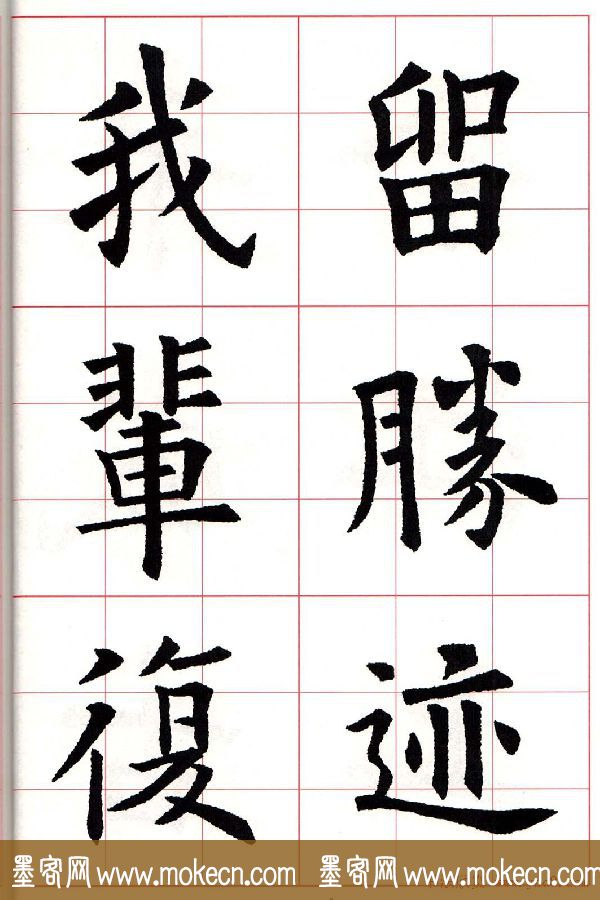 留勝迹
我輩復
墨客网 www.mokecn.com 墨客网 www.mokecn.com